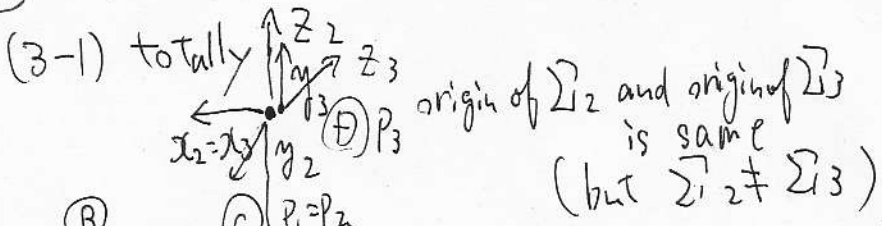 (3-1) totally
z₂
y₃
z₃
x₂=x₃
y₂
Ⓓ P₃
origin of Σ₂ and origin of Σ₃
is same
(but Σ₂≠Σ₃)
Ⓑ
Ⓒ P₁=P₂